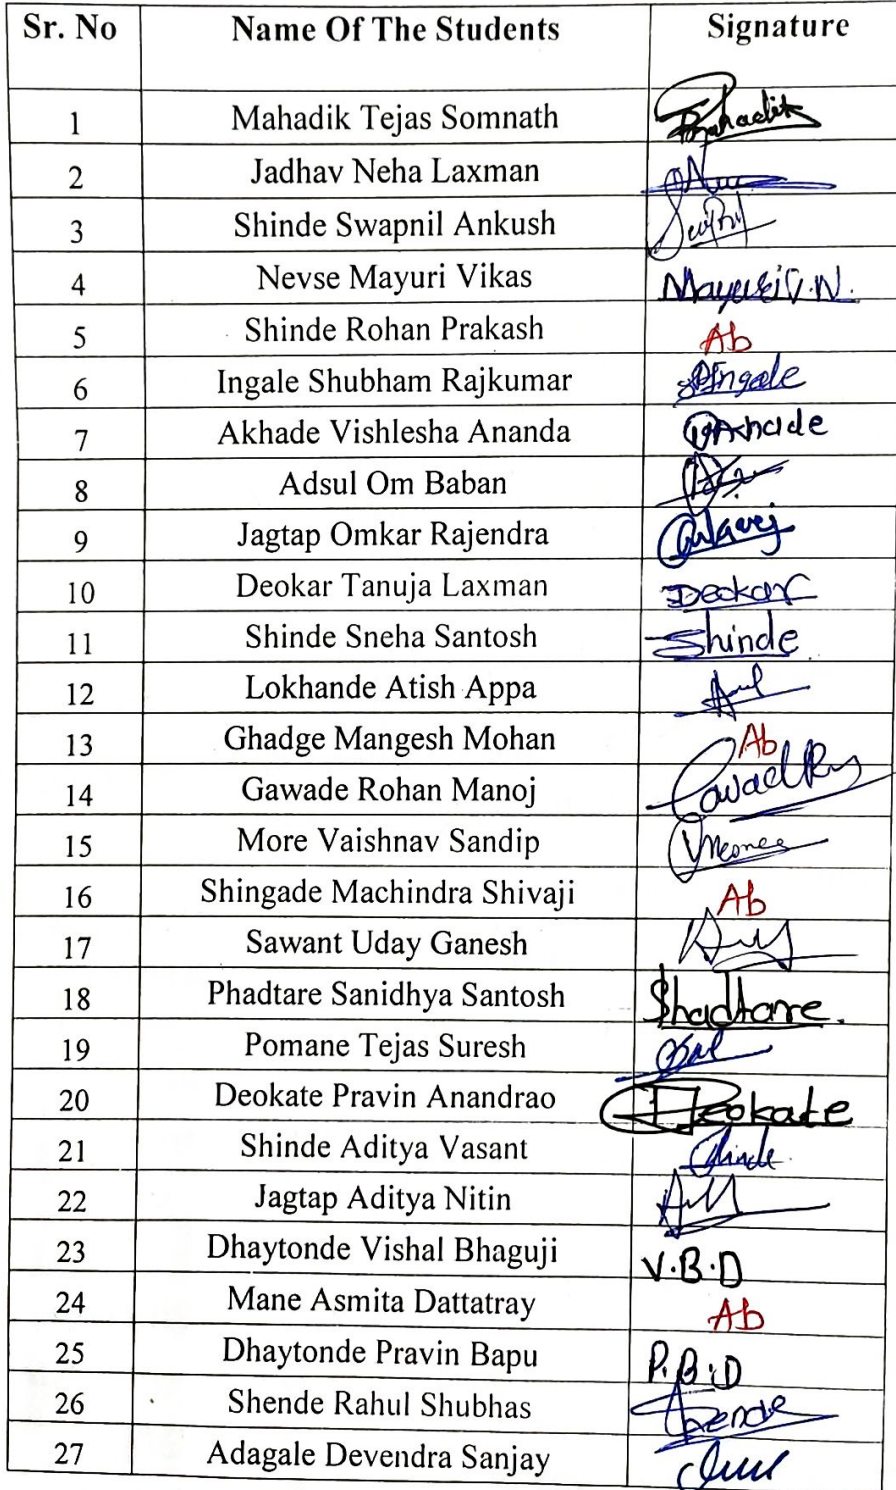 Sr. No Name Of The Students Signature
1 Mahadik Tejas Somnath Mahadik
2 Jadhav Neha Laxman
3 Shinde Swapnil Ankush
4 Nevse Mayuri Vikas Mayuri V.N.
5 Shinde Rohan Prakash Ab
6 Ingale Shubham Rajkumar Ingale
7 Akhade Vishlesha Ananda Akhade
8 Adsul Om Baban
9 Jagtap Omkar Rajendra
10 Deokar Tanuja Laxman Deokar
11 Shinde Sneha Santosh Shinde
12 Lokhande Atish Appa
13 Ghadge Mangesh Mohan Ab
14 Gawade Rohan Manoj
15 More Vaishnav Sandip
16 Shingade Machindra Shivaji Ab
17 Sawant Uday Ganesh
18 Phadtare Sanidhya Santosh Phadtare.
19 Pomane Tejas Suresh
20 Deokate Pravin Anandrao Deokate
21 Shinde Aditya Vasant Shinde
22 Jagtap Aditya Nitin
23 Dhaytonde Vishal Bhaguji V.B.D
24 Mane Asmita Dattatray Ab
25 Dhaytonde Pravin Bapu P.B.D
26 Shende Rahul Shubhas Shende
27 Adagale Devendra Sanjay